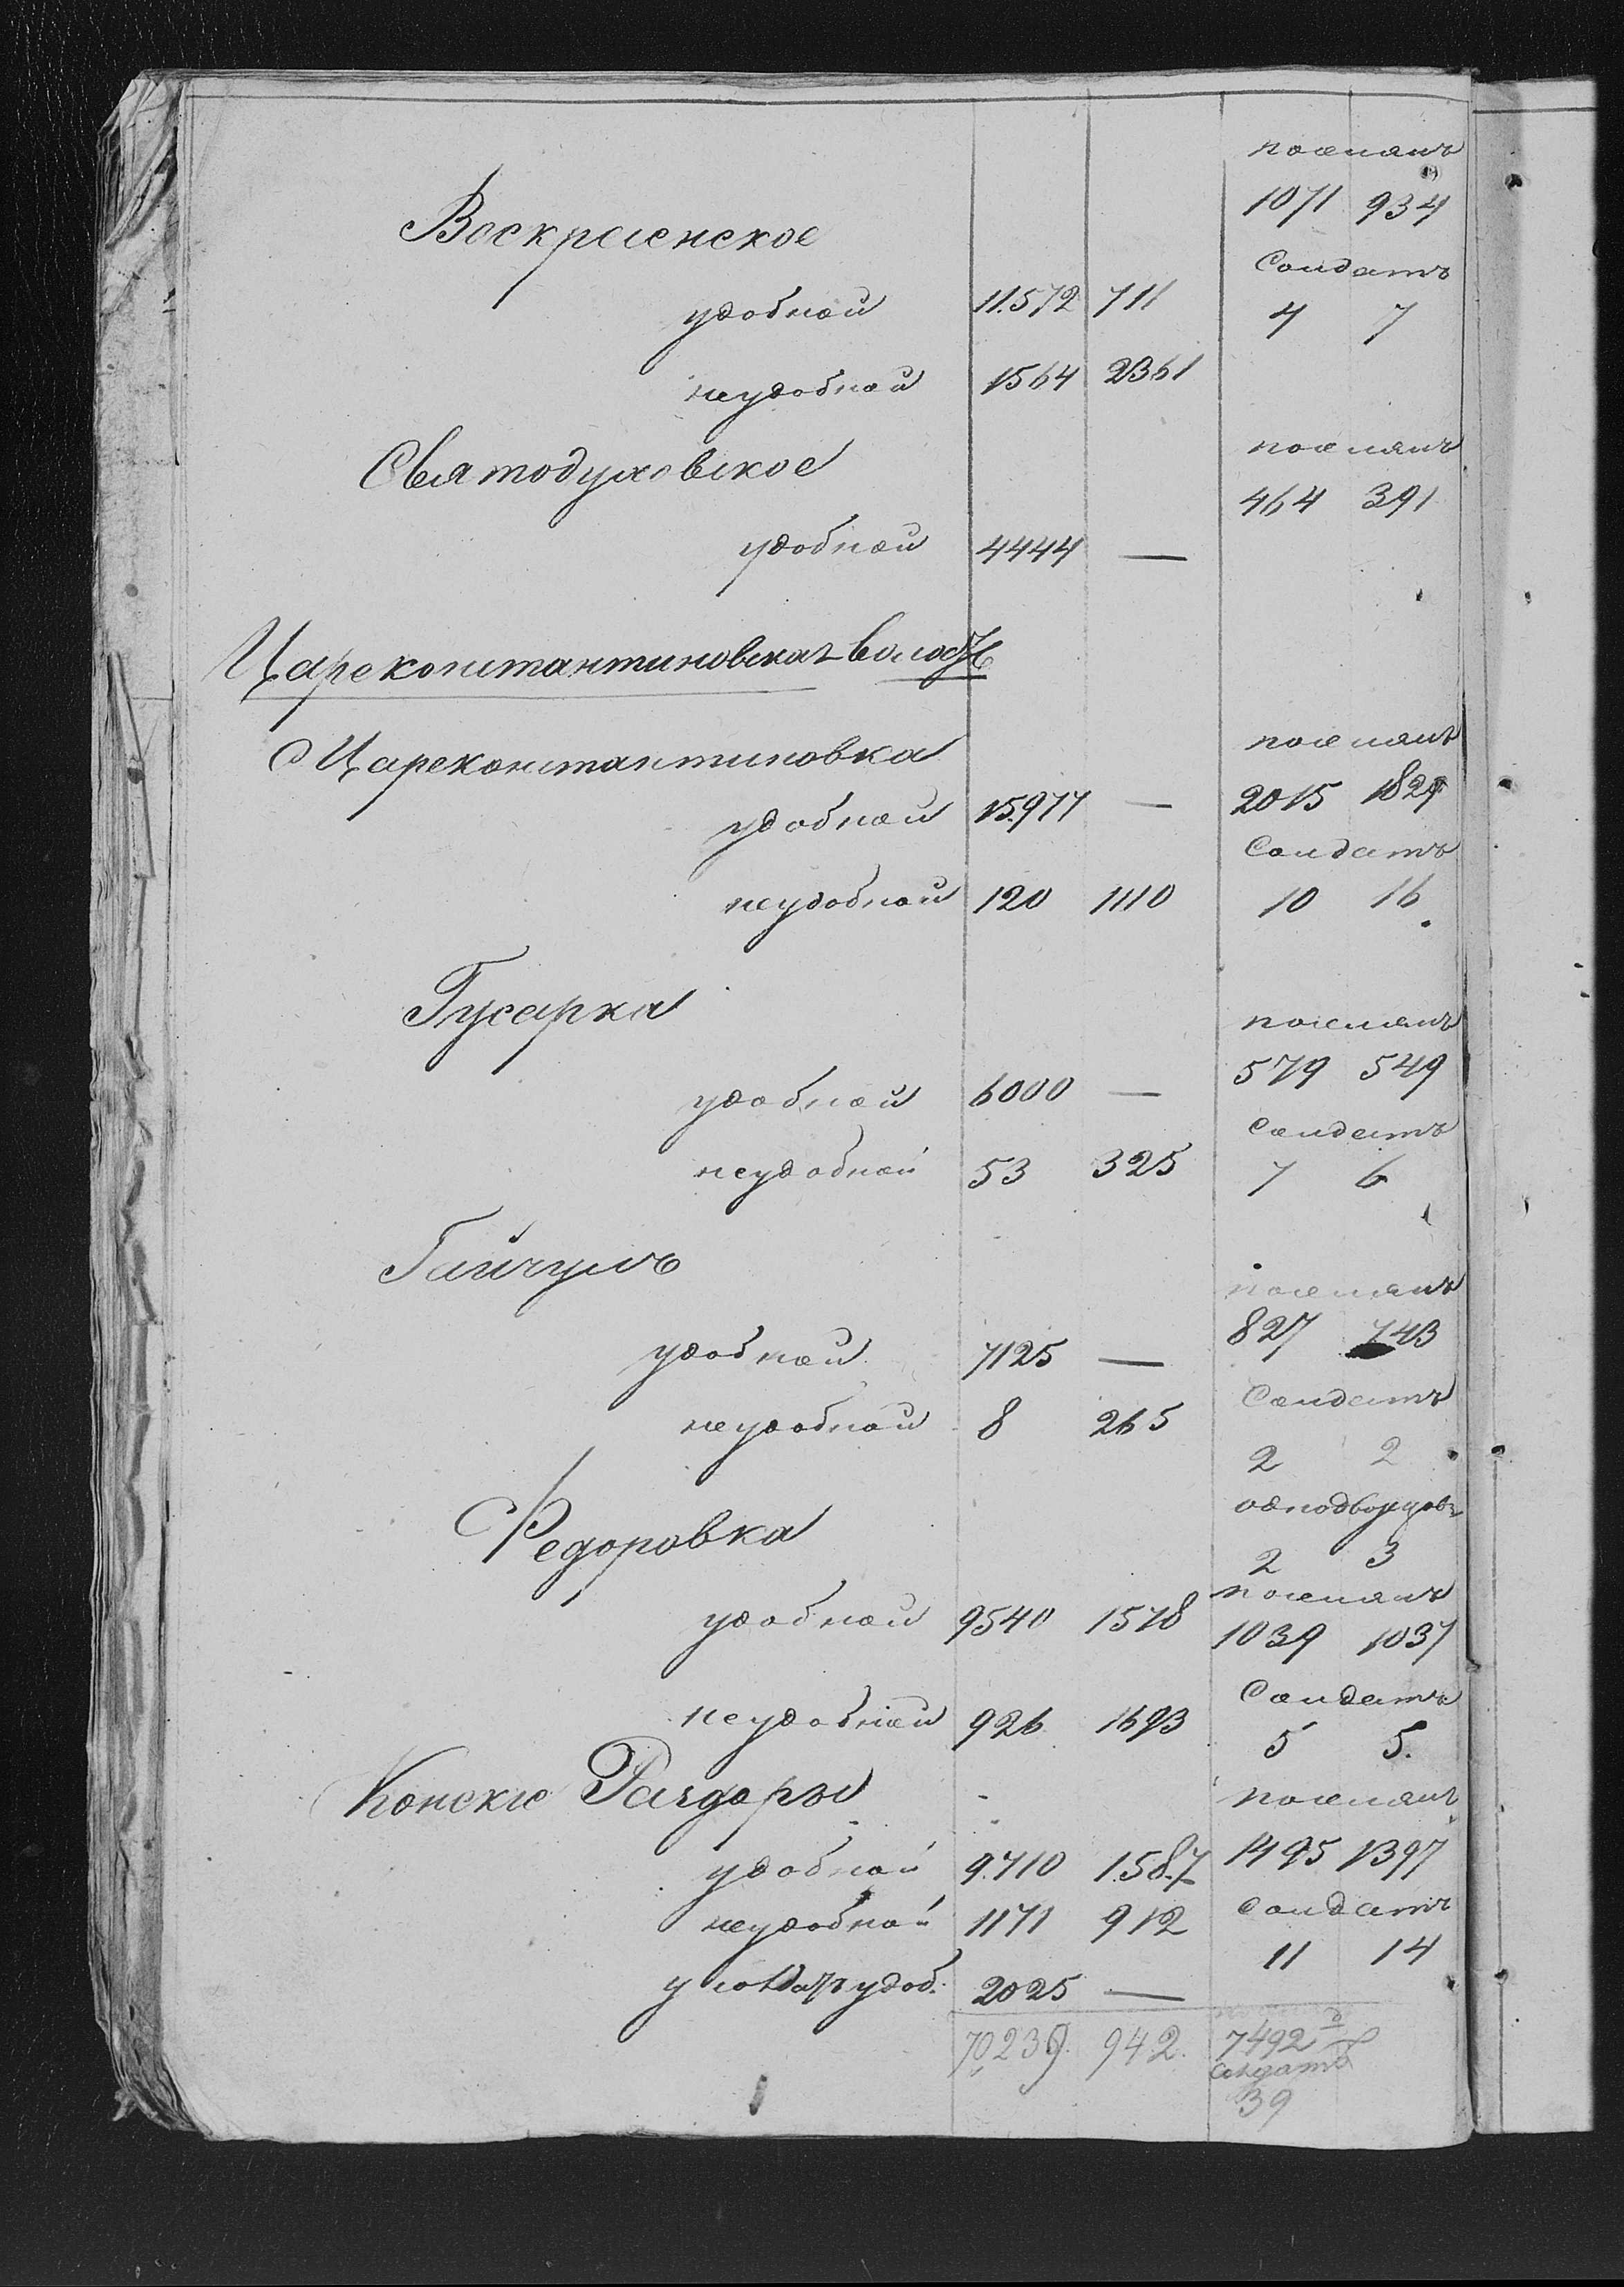 поселянъ
1071 934
Воскресенское
Солдатъ
удобной 11.572 711 4 7
неудобной 1564 2361
Святодуховское поселянъ
464 391
удобной 4444 —
Цареконстантиновская волость
Цареконстантиновка поселянъ
удобной 15.977 — 2015 1829
Солдатъ
неудобной 120 1110 10 16
Гусарка поселянъ
579 549
удобной 6000 —
Солдатъ
неудобной 53 325 7 6
Гайчулъ поселянъ
827 743
удобной 7125 —
Солдатъ
неудобной 8 265
2 2
однодворцовъ
Федоровка 2 3
поселянъ
удобной 9540 1578 1039 1037
Солдатъ
неудобной 926 1693 5 5.
Конскіе Раздоры поселянъ
удобной 9.710 1.587 1495 1397
неудобной 1171 912 Солдатъ
11 14
у солдатъ удоб. 2025 —
70,239. 942. 7492
Солдатъ
39